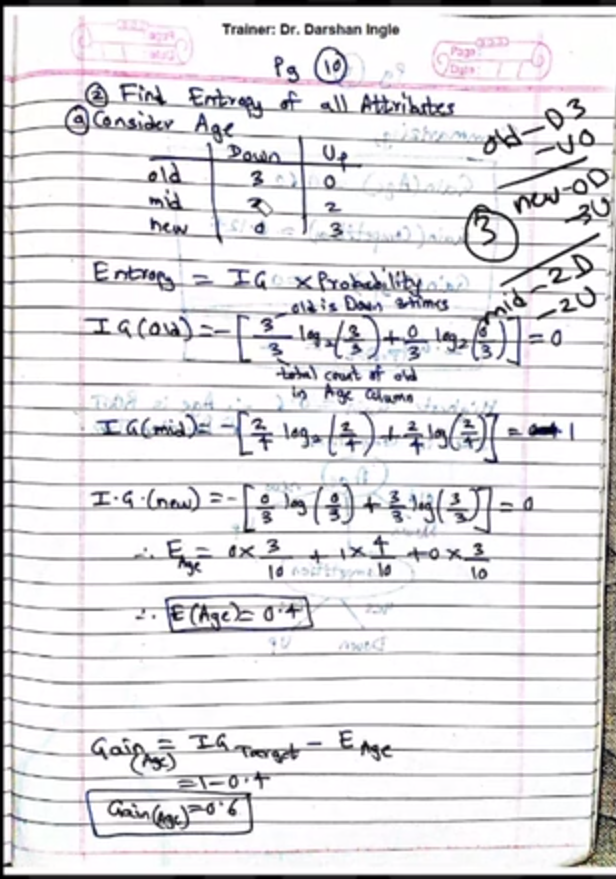 Trainer: Dr. Darshan Ingle
Page
Date
Pg 10
② Find Entropy of all Attributes
ⓐ Consider Age
Down Up
old 3 0
mid 2 2
new 0 3
old-D3
-U0
new-0D
-3U
3
mid-2D
-2U
Entropy = IG × Probability
old is Down 3 times
IG(old) = -[3/3 log₂(3/3) + 0/3 log₂(0/3)] = 0
total count of old
in Age column
IG(mid) = -[2/4 log₂(2/4) + 2/4 log(2/4)] = 1
I.G.(new) = -[0/3 log(0/3) + 3/3 log(3/3)] = 0
∴ E Age = 0×3/10 + 1×4/10 + 0×3/10
∴ E(Age) = 0.4
Gain (Age) = IG Target - E Age
= 1-0.4
Gain(Age) = 0.6